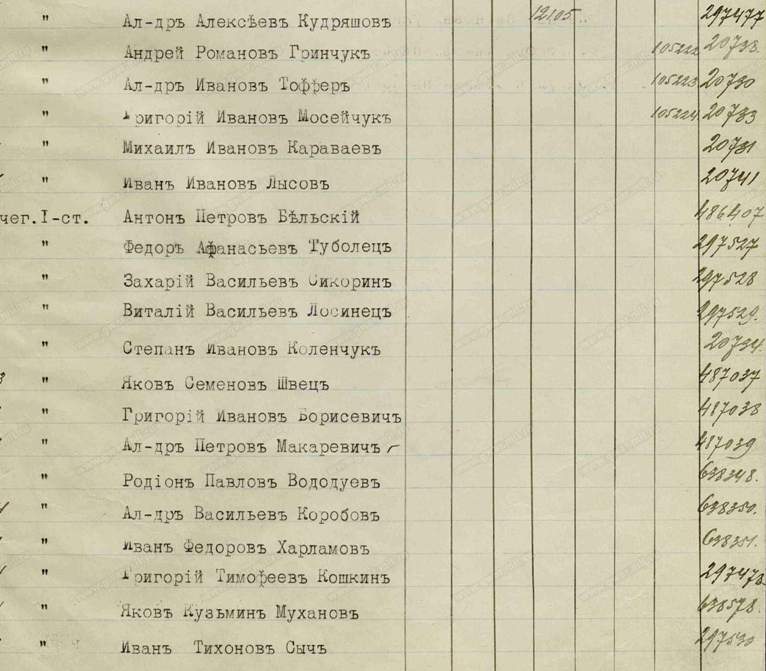 " Ал-дръ Алексѣевъ Кудряшовъ 12105 297477
" Андрей Романовъ Гринчукъ 105222 20738
" Ал-дръ Ивановъ Тофферъ 105223 20730
" Григорій Ивановъ Мосейчукъ 105224 20733
" Михаилъ Ивановъ Караваевъ 20731
" Иванъ Ивановъ Лысовъ 20741
чег.I-ст. Антонъ Петровъ Бѣльскій 486407
" Федоръ Афанасьевъ Туболецъ 297527
" Захарій Васильевъ Сикоринъ 297528
" Виталій Васильевъ Лосинецъ 297529.
" Степанъ Ивановъ Коленчукъ 20734.
" Яковъ Семеновъ Швецъ 487037
" Григорій Ивановъ Борисевичъ 487038
" Ал-дръ Петровъ Макаревичъ 487039
" Родіонъ Павловъ Вододуевъ 638348.
" Ал-дръ Васильевъ Коробовъ 638350.
" Иванъ Федоровъ Харламовъ 638351.
" Григорій Тимофеевъ Кошкинъ 297478
" Яковъ Кузьминъ Мухановъ 638578.
" Иванъ Тихоновъ Сычъ 297530